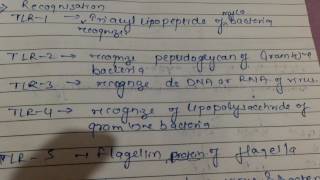 Recognisation
TLR-1 → Triacyl lipopeptide of myco bacteria
recognize
TLR-2 → recognize peptidoglycan of Gram +ve
bacteria
TLR-3 → recognize ds DNA or RNA of virus
TLR-4 → recognize of lipopolysaccharide of
gram -ve bacteria
TLR-5 → Flagellin protein of flagella